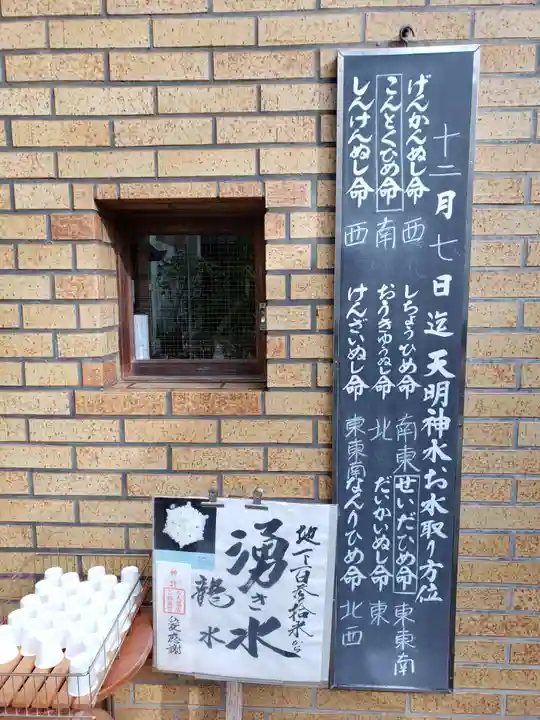 十二月七日迄 天明神水お水取り方位
げんかんぬし命 西
こんとくひめ命 南
しんけんぬし命 西
しちょうひめ命 南東
おうきゅうぬし命 北
けんざいぬし命 東東南
せいだひめ命 東東南
だいかいぬし命 東
なんりひめ命 北西
地下百参拾米から
湧き水
龍水
感謝